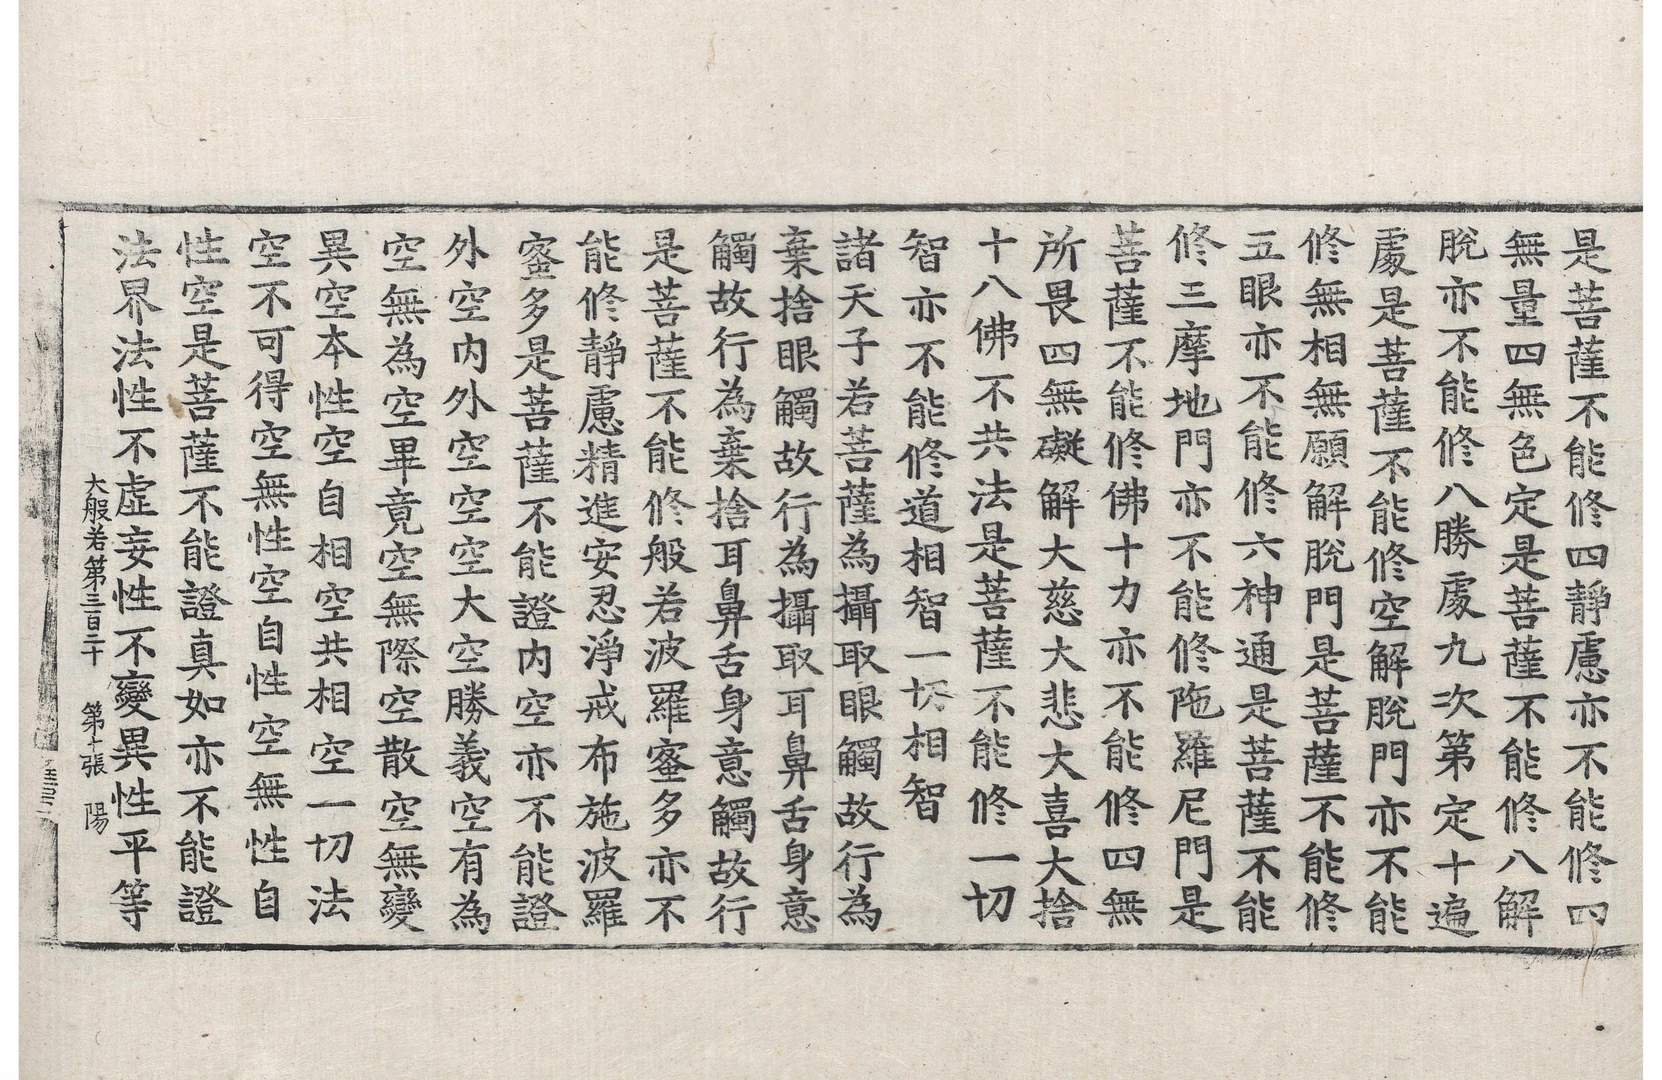 是菩薩不能修四靜慮亦不能修四
無量四無色定是菩薩不能修八解
脫亦不能修八勝處九次第定十遍
處是菩薩不能修空解脫門亦不能
修無相無願解脫門是菩薩不能修
五眼亦不能修六神通是菩薩不能
修三摩地門亦不能修陁羅尼門是
菩薩不能修佛十力亦不能修四無
所畏四無礙解大慈大悲大喜大捨
十八佛不共法是菩薩不能修一切
智亦不能修道相智一切相智
諸天子若菩薩為攝取眼觸故行為
棄捨眼觸故行為攝取耳鼻舌身意
觸故行為棄捨耳鼻舌身意觸故行
是菩薩不能修般若波羅蜜多亦不
能修靜慮精進安忍淨戒布施波羅
蜜多是菩薩不能證內空亦不能證
外空內外空空空大空勝義空有為
空無為空畢竟空無際空散空無變
異空本性空自相空共相空一切法
空不可得空無性空自性空無性自
性空是菩薩不能證真如亦不能證
法界法性不虛妄性不變異性平等
大般若第三百二十 第十張 陽